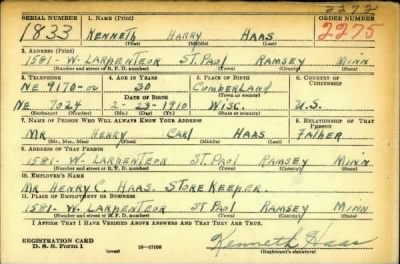 2272
SERIAL NUMBER 1. NAME (Print) ORDER NUMBER
1833 KENNETH HARRY HAAS 2275
(First) (Middle) (Last)
2. ADDRESS (Print)
1581- W. LARPENTEUR ST. PAUL RAMSEY MINN
(Number and street or R. F. D. number) (Town) (County) (State)
3. TELEPHONE 4. AGE IN YEARS 5. PLACE OF BIRTH 6. COUNTRY OF CITIZENSHIP
NE 9170- 30 CUMBERLAND
DATE OF BIRTH (Town or county)
NE 7024 2-23-1910 WISC. U.S.
(Exchange) (Number) (Mo.) (Day) (Yr.) (State or country)
7. NAME OF PERSON WHO WILL ALWAYS KNOW YOUR ADDRESS 8. RELATIONSHIP OF THAT PERSON
MR HENRY CARL HAAS FATHER
(Mr., Mrs., Miss) (First) (Middle) (Last)
9. ADDRESS OF THAT PERSON
1581- W- LARPENTEUR ST. PAUL RAMSEY MINN
(Number and street or R. F. D. number) (Town) (County) (State)
10. EMPLOYER'S NAME
MR HENRY C. HAAS. STORE KEEPER.
11. PLACE OF EMPLOYMENT OR BUSINESS
1581- W. LARPENTEUR ST. PAUL RAMSEY MINN
(Number and street or R. F. D. number) (Town) (County) (State)
I AFFIRM THAT I HAVE VERIFIED ABOVE ANSWERS AND THAT THEY ARE TRUE.
REGISTRATION CARD
D. S. S. Form 1 (over) 16-17105 Kenneth Haas
(Registrant's signature)